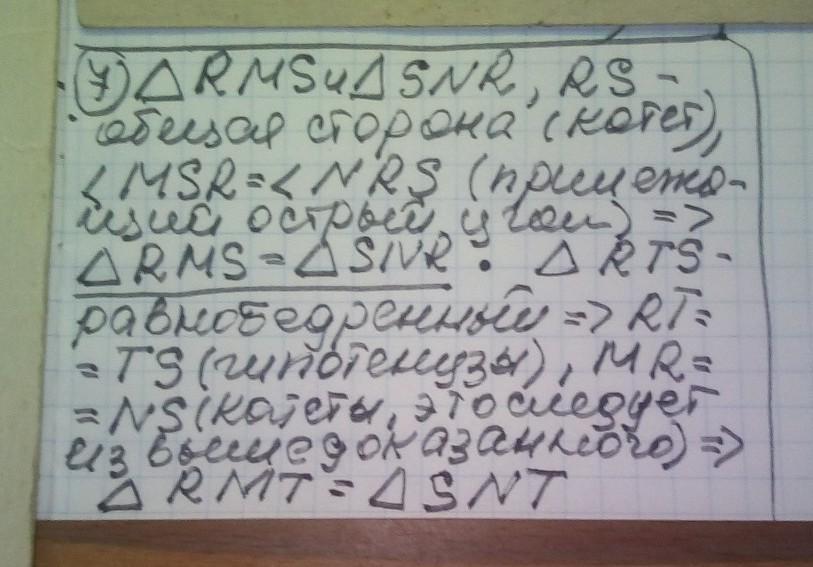 7) △ RMS и △ SNR, RS -
общая сторона (катет),
∠MSR = ∠NRS (прилежа-
щий острый угол) =>
△ RMS = △ SNR . △ RTS -
равнобедренный => RT =
= TS (гипотенузы), MR =
= NS (катеты, это следует
из вышедоказанного) =>
△ RMT = △ SNT